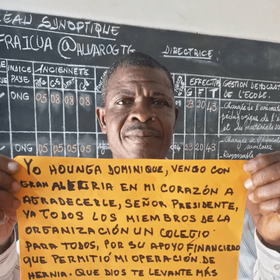 LEAU SYNOPTIQUE
FRAICUA @ALVAROGTG DIRECTRICE
INDICE PAYE ANCIENNETE EFFECTIF GESTION
G F T
DE L'ECOLE
ONG 05 03 08 08 23 20 43
ONG 05 05 05 05 23 20 43
YO HOUNGA DOMINIQUE, VENGO CON
GRAN ALEGRIA EN MI CORAZÓN A
AGRADECERLE, SEÑOR PRESIDENTE,
YA TODOS LOS MIEMBROS DE LA
ORGANIZACIÓN UN COLEGIO
PARA TODOS, POR SU APOYO FINANCIERO
QUE PERMITIÓ MI OPERACIÓN DE
HERNIA. QUE DIOS TE LEVANTE MÁS